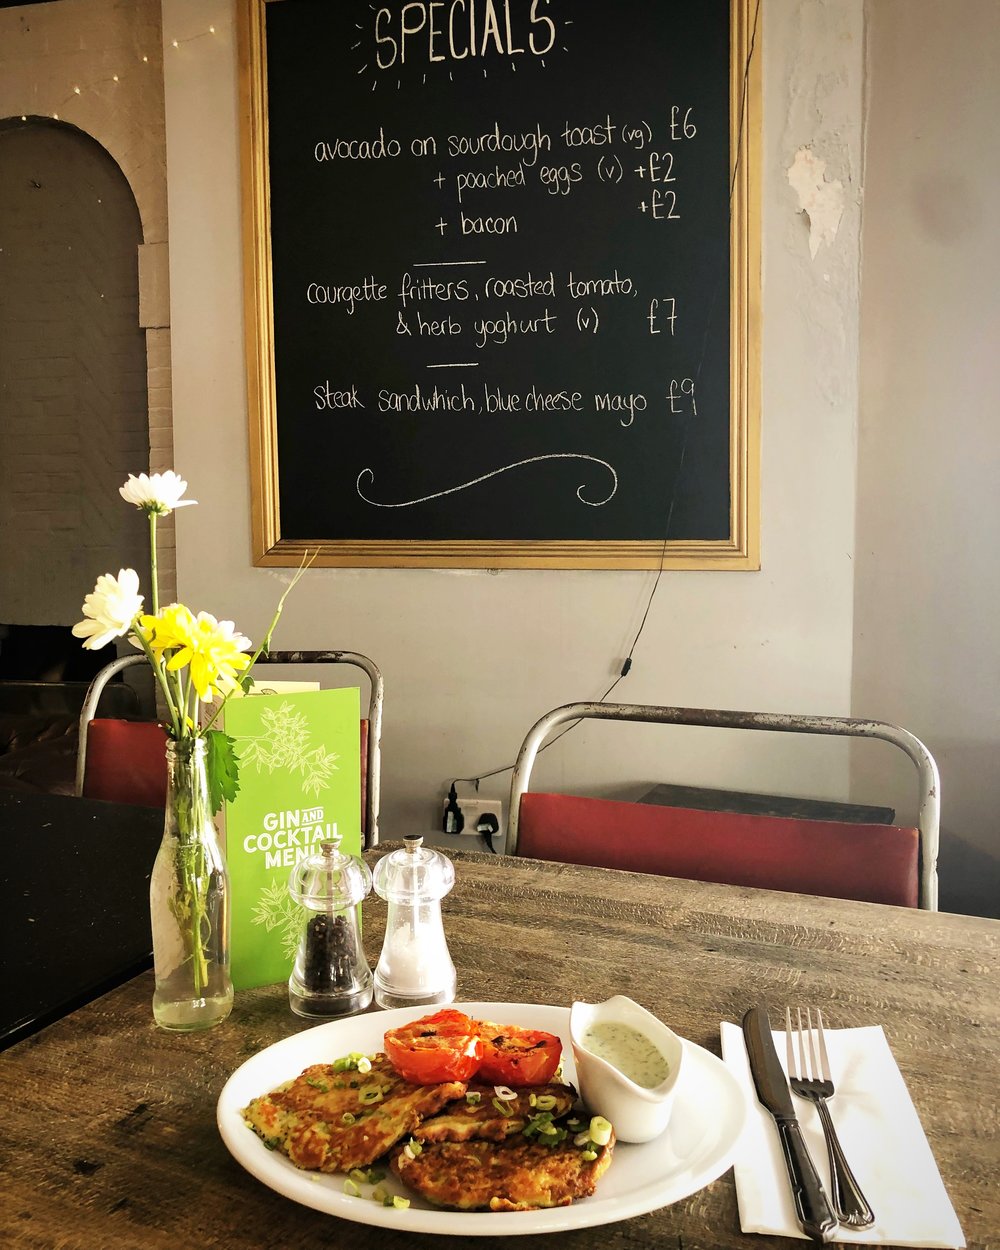 SPECIALS
avocado on sourdough toast (vg) £6
+ poached eggs (v) +£2
+ bacon +£2
courgette fritters, roasted tomato,
& herb yoghurt (v) £7
steak sandwhich, blue cheese mayo £9
GIN AND
COCKTAIL
MENU